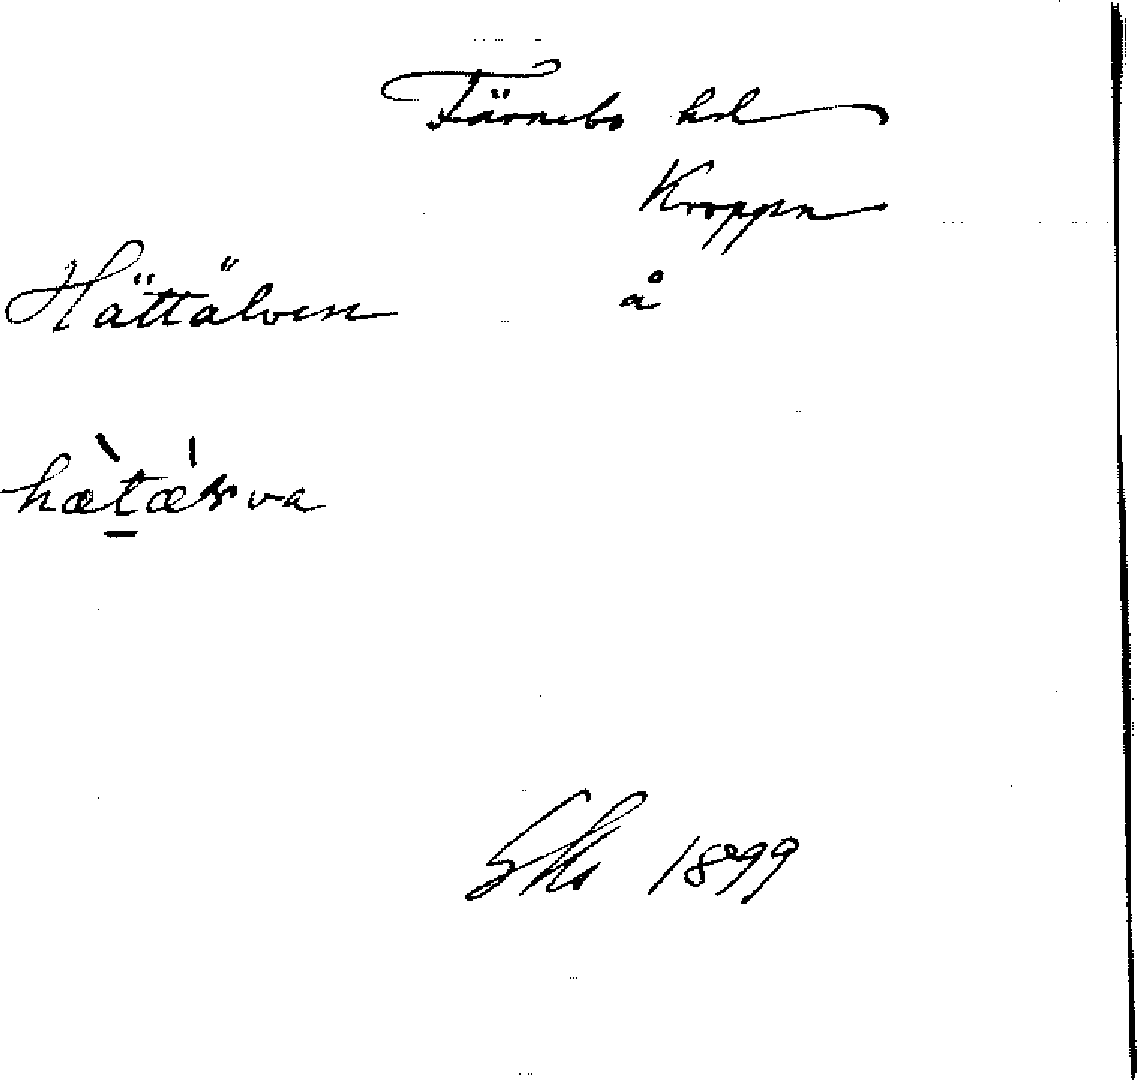 Färnebo hd
Kroppa
Hättälven å
hætælva
1899